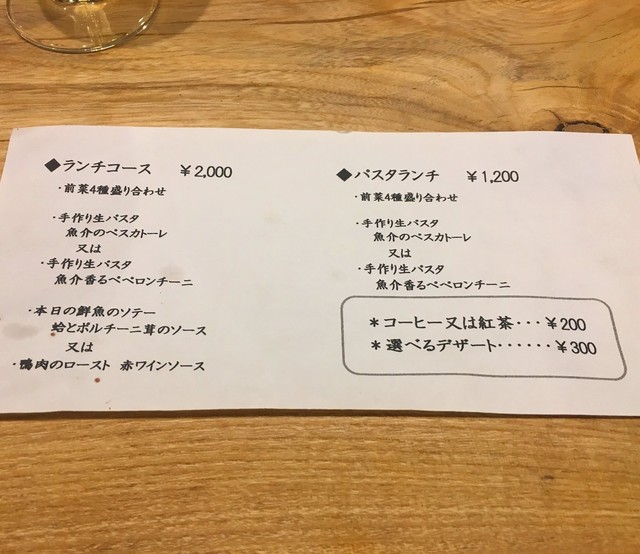 ◆ランチコース ￥2,000
・前菜4種盛り合わせ
・手作り生パスタ
魚介のペスカトーレ
又は
・手作り生パスタ
魚介香るペペロンチーニ
・本日の鮮魚のソテー
蛤とポルチーニ茸のソース
又は
・鴨肉のロースト 赤ワインソース
◆パスタランチ ￥1,200
・前菜4種盛り合わせ
・手作り生パスタ
魚介のペスカトーレ
又は
・手作り生パスタ
魚介香るペペロンチーニ
＊コーヒー又は紅茶・・・￥200
＊選べるデザート・・・・・・￥300